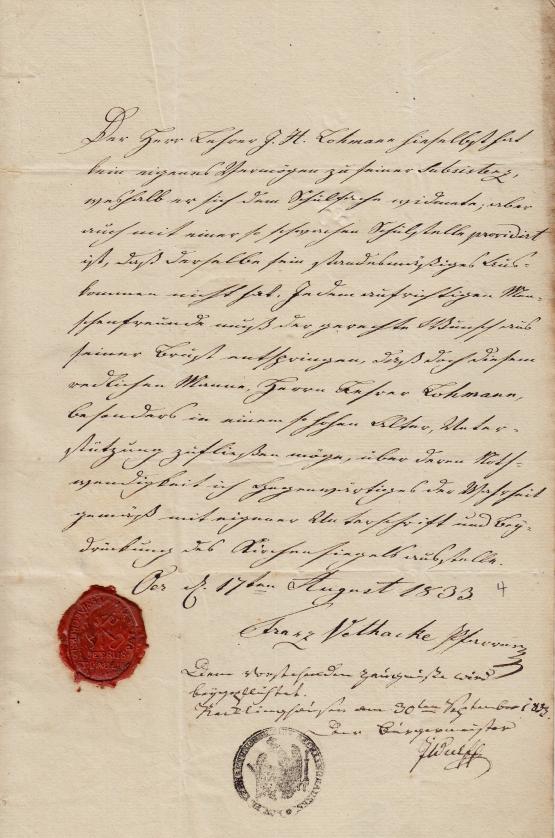 Der Herr Lehrer J. H. Lohmann hieselbst hat
kein eigenes Vermögen zu seiner Subsistenz,
weshalb er sich dem Schulfache widmete; aber
auch mit einer so schwachen Schulstelle providirt
ist, daß derselbe sein standesmäßiges Aus-
kommen nicht hat. Jedem aufrichtigen Men-
schenfreunde muß der gerechte Wunsch aus
seiner Brust entspringen, daß doch diesem
redlichen Manne, Herrn Lehrer Lohmann,
besonders in einem so hohen Alter, Unter-
stützung zufließen möge, über deren Noth-
wendigkeit ich Gegenwärtiges der Wahrheit
gemäß mit eigener Unterschrift und Bey-
drückung des Kirchensiegels ausstelle.
Oer d. 17ten August 1833
4
Franz Pfarrer
PETRUS
Dem vorstehenden Zeugnisse wird
beygepflichtet.
Recklinghausen am 30ten September 1833.
Der Bürgermeister